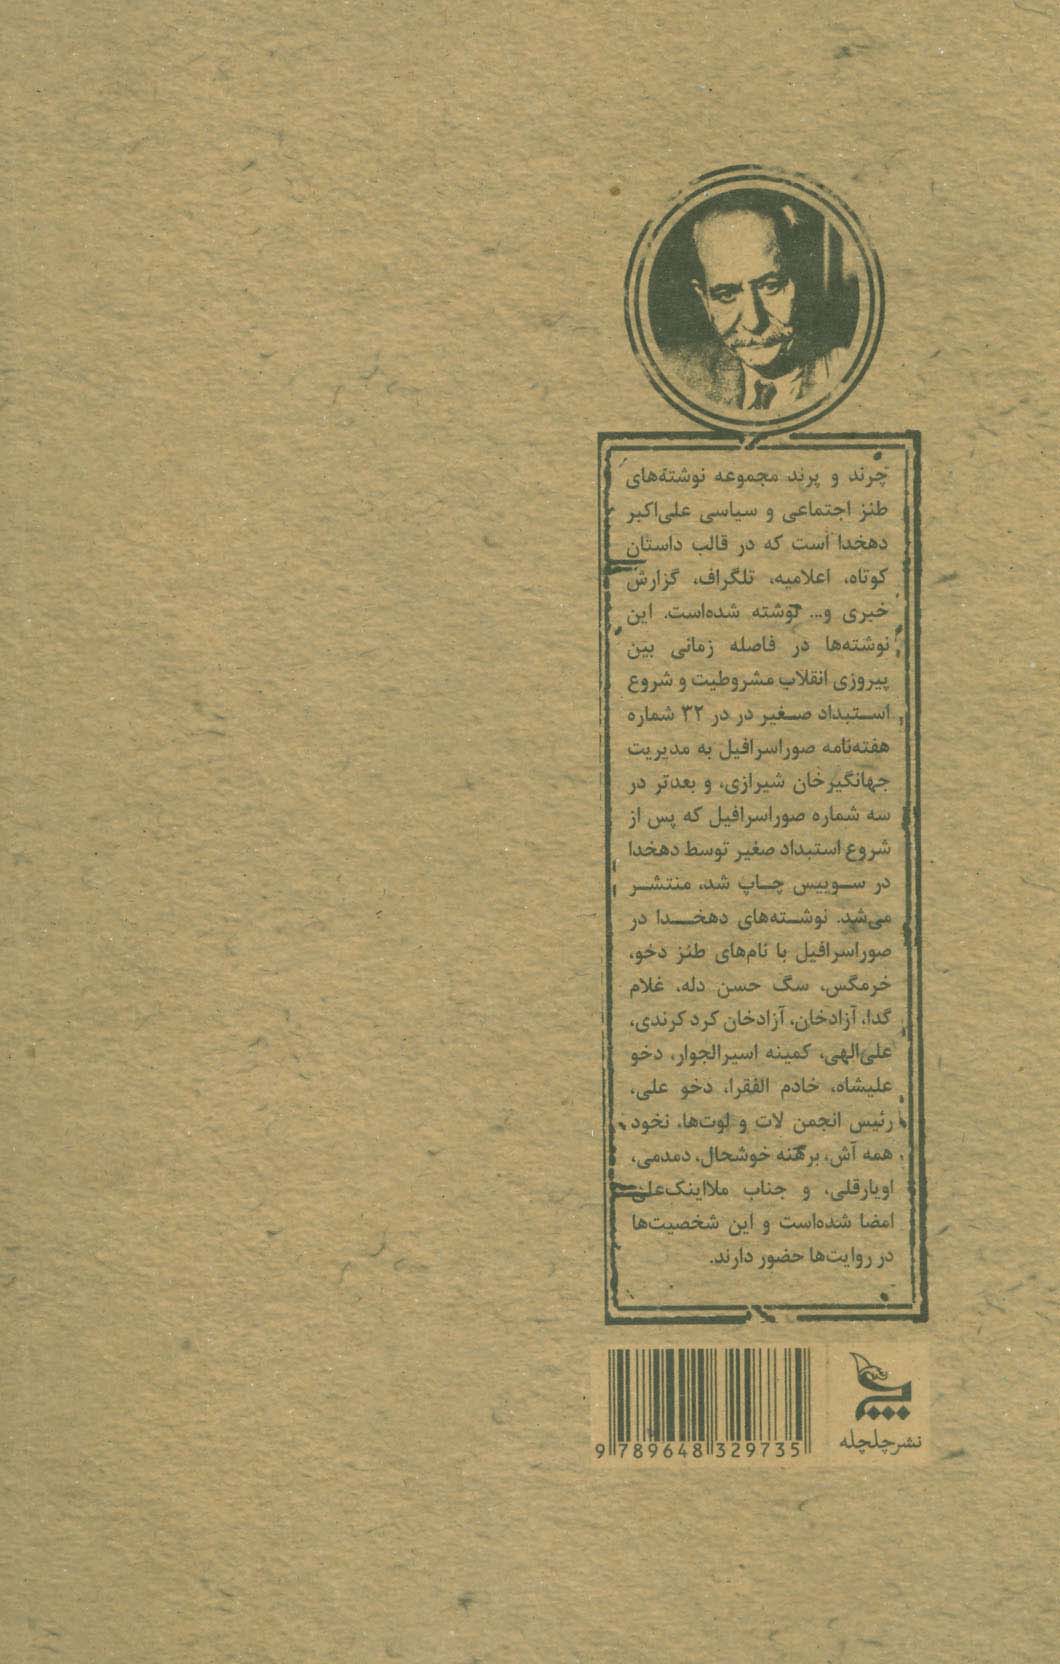 چرند و پرند مجموعه نوشته‌های
طنز اجتماعی و سیاسی علی‌اکبر
دهخدا است که در قالب داستان
کوتاه، اعلامیه، تلگراف، گزارش
خبری و... نوشته شده‌است. این
نوشته‌ها در فاصله زمانی بین
پیروزی انقلاب مشروطیت و شروع
استبداد صغیر در در ۳۲ شماره
هفته‌نامه صوراسرافیل به مدیریت
جهانگیرخان شیرازی، و بعدتر در
سه شماره صوراسرافیل که پس از
شروع استبداد صغیر توسط دهخدا
در سوییس چاپ شد، منتشر
می‌شد. نوشته‌های دهخدا در
صوراسرافیل با نام‌های طنز دخو،
خرمگس، سگ حسن دله، غلام
گدا، آزادخان، آزادخان کرد کرندی،
علی‌الهی، کمینه اسیرالجوار، دخو
علیشاه، خادم الفقرا، دخو علی،
رئیس انجمن لات و لوت‌ها، نخود
همه آش، برهنه خوشحال، دمدمی،
اویارقلی، و جناب ملااینک‌علی
امضا شده‌است و این شخصیت‌ها
در روایت‌ها حضور دارند.
نشر چلچله
9 789648 329735